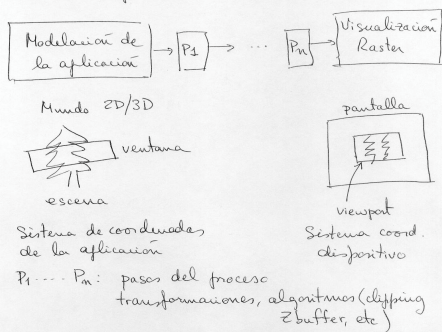 Modelación de
la aplicación
P1
...
Pn
Visualización
Raster
Mundo 2D/3D
ventana
escena
pantalla
viewport
Sistema de coordenadas
de la aplicación
Sistema coord.
dispositivo
P1 .... Pn: pasos del proceso
transformaciones, algoritmos (clipping
Zbuffer, etc)